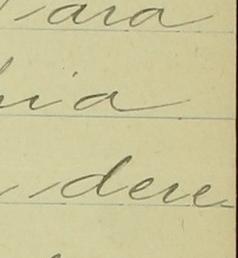 Para
hia
dere-